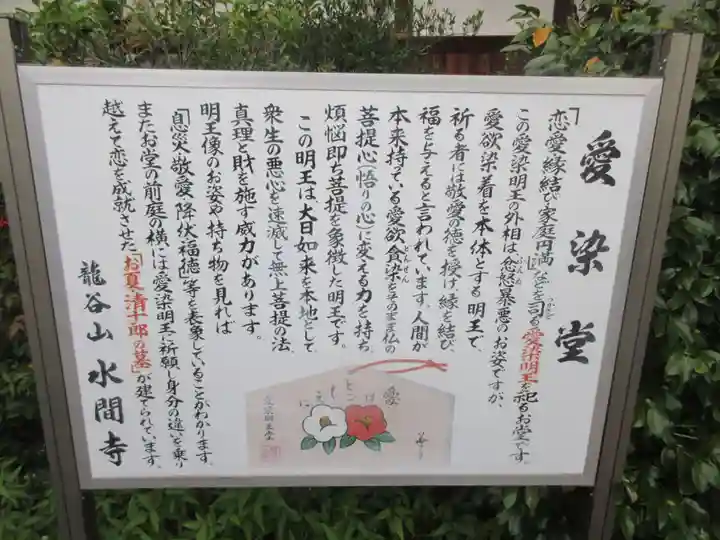 愛染堂
「恋愛・縁結び・家庭円満」などを司る愛染明王を祀るお堂です。
この愛染明王の外相は忿怒暴悪のお姿ですが、
愛欲染着を本体とする明王で、
祈る者には敬愛の徳を授け、縁を結び、
福を与えると言われています。人間が
本来持っている愛欲貪染をそのまま仏の
菩提心(悟りの心)に変える力を持ち、
煩悩即ち菩提を象徴した明王です。
この明王は、大日如来を本地として
衆生の悪心を速滅して無上菩提の法、
真理と財を施す威力があります。
明王像のお姿や持ち物を見れば
「息災・敬愛・降伏・福徳」等を表象していることがわかります。
またお堂の前庭の横には愛染明王に祈願し身分の違いを乗り
越えて恋を成就させた「お夏・清十郎の墓」が建てられています。
龍谷山水間寺
愛